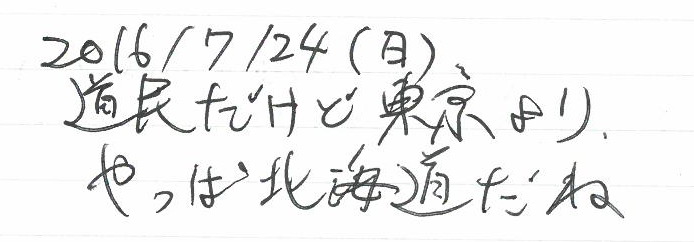 2016/7/24(日)
道民だけど東京より、
やっぱ北海道だね